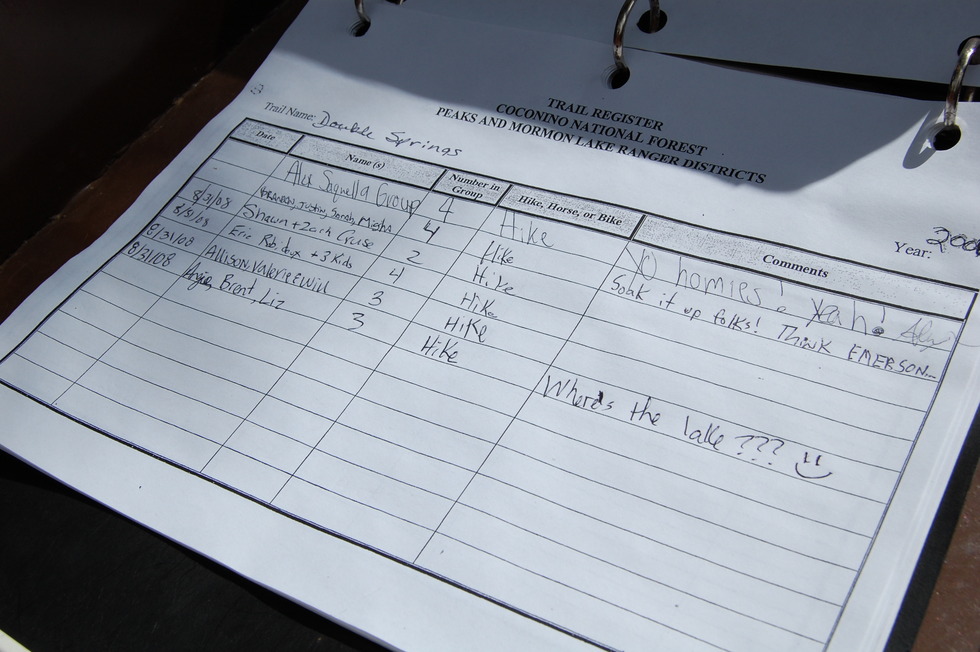 TRAIL REGISTER
COCONINO NATIONAL FOREST
PEAKS AND MORMON LAKE RANGER DISTRICTS
Trail Name: Double Springs
Year: 200
Date Name (s) Number in Group Hike, Horse, or Bike Comments
Alex Group 4 Hike No homies! Yeah!
8/31/08 BRANDON, Justin, Sarah, 4 Hike Soak it up folks! Think EMERSON...
8/31/08 Shawn + Zach Cruse 2 Hike
8/31/08 Eric + 3 Kids 4 Hike
8/31/08 Allison, Valerie & Will 3 Hike
Angie, Brent, Liz 3 Hike Where's the lake ???